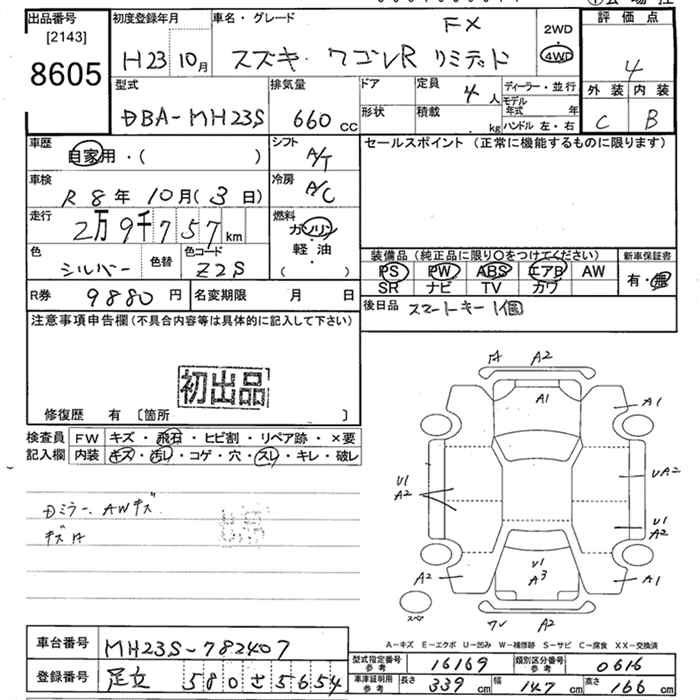 出品番号
[2143]
8605
初度登録年月
H23 10月
車名・グレード
FX
スズキ ワゴンR リミテッド
2WD
4WD
評価点
4
外装 内装
C B
型式
DBA-MH23S
排気量
660 CC
ドア
形状
定員
4 人
積載
kg
ディーラー・並行
モデル年式 年
ハンドル 左・右
車歴
自家用・( )
シフト
A/T
車検
R 8年 10月( 3 日)
冷房
A/C
走行
2万9千757 km
燃料
ガソリン
軽油
( )
色
シルバー
色替
色コード
Z2S
R券 9880 円
名変期限 月 日
セールスポイント (正常に機能するものに限ります)
装備品 (純正品に限り○をつけてください)
新車保証書
PS PW ABS エアB AW
SR ナビ TV カワ
有・無
後日品 スマートキー1個
注意事項申告欄 (不具合内容等は具体的に記入して下さい)
初出品
修復歴 有 [箇所 ]
検査員
記入欄
FW キズ・飛石・ヒビ割・リペア跡・×要
内装 キズ・汚レ・コゲ・穴・スレ・キレ・破レ
Dミラー、AWキズ
A2
A1
A1
U1
A2
UA2
U1
A2
U1
A3
A2
A1
スペア
A2
A-キズ E-エクボ U-凹み W-補修跡 S-サビ C-腐食 XX-交換済
車台番号 MH23S-782407
登録番号 足立 580 さ 5654
型式指定番号
参考
16169
類別区分番号
参考
0616
車庫証明用
参考
長さ 339 cm
幅 147 cm
高さ 166 cm